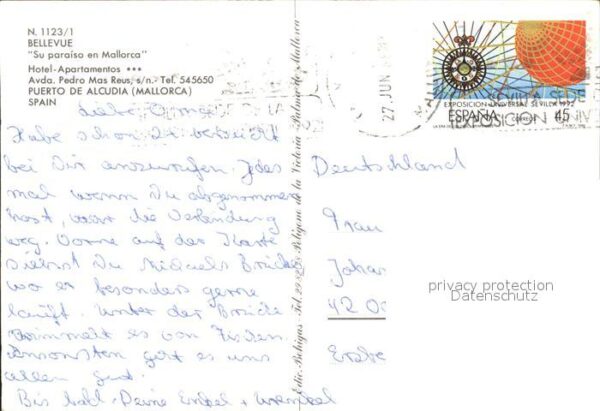 N. 1123/1
BELLEVUE
"Su paraíso en Mallorca"
Hotel-Apartamentos ***
Avda. Pedro Mas Reus, s/n.- Tel. 545650
PUERTO DE ALCUDIA (MALLORCA)
SPAIN
Liebe Oma
Habe schon 2x versucht
bei Dir anzurufen. Jedes
mal wenn Du abgenommen
hast, war die Verbindung
weg. Vorne auf der Karte
siehst Du Brücke
wo er besonders gerne
läuft. Unter der Brücke
wimmelt es von Fischen
Ansonsten geht es uns
allen gut.
Bis bald. Deine Enkel + Urenkel
Edic. Bohigas
Palma de Mallorca
27 JUN
EXPOSICION UNIVERSAL SEVILLA 1992
ESPAÑA
CORREOS
45
SEVILLA SEDE
EXPOSICION UNIV
Deutschland
Frau
Joha
privacy protection
Datenschutz